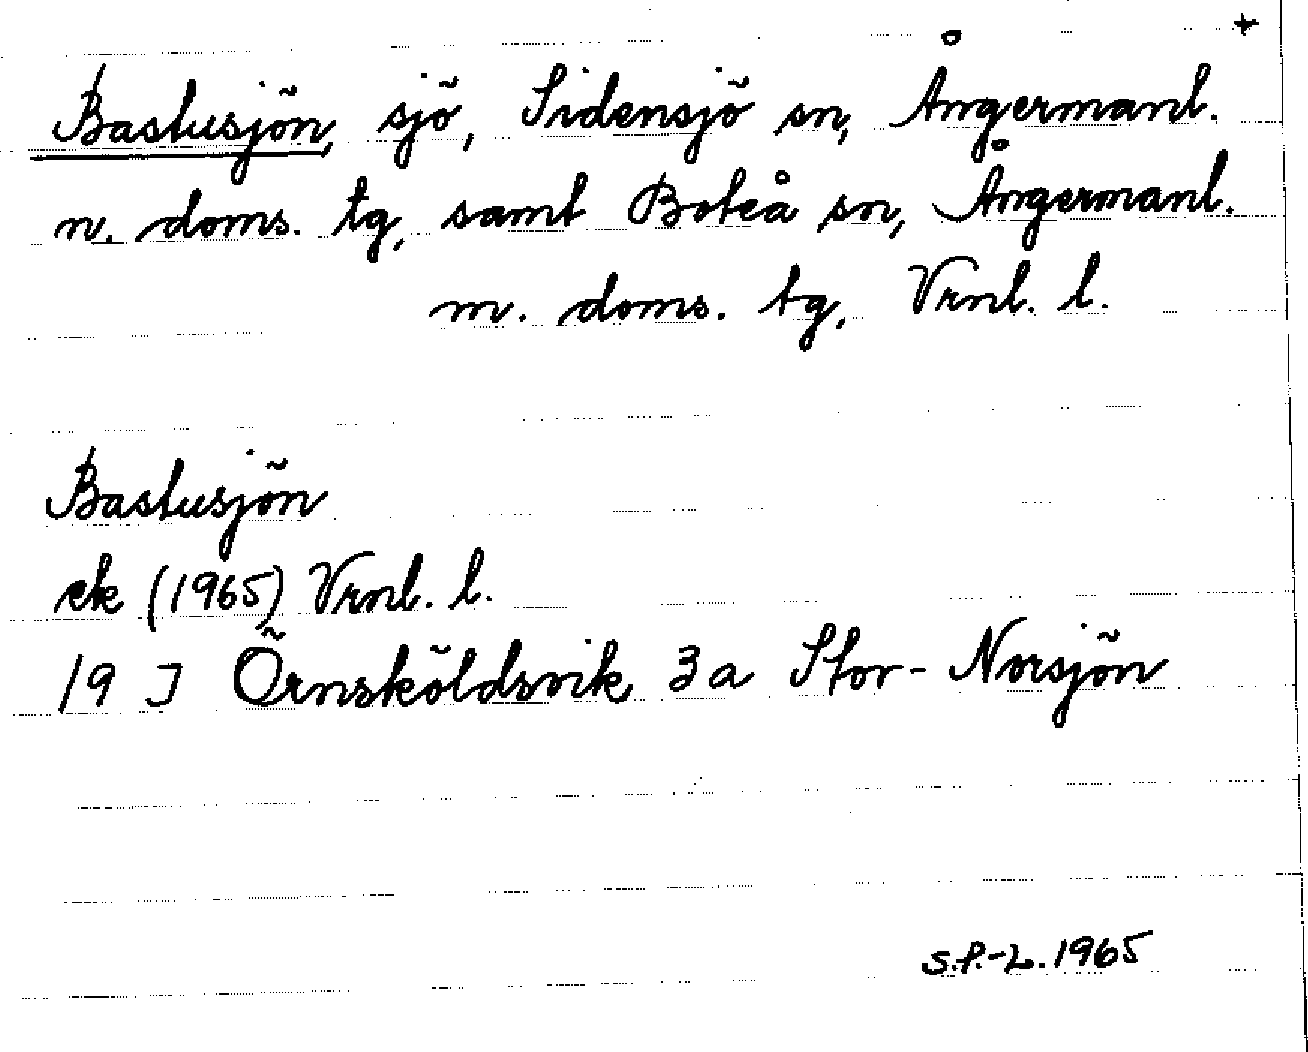 +
Bastusjön, sjö, Sidensjö sn, Ångermanl.
n. doms. tg, samt Boteå sn, Ångermanl.
m. doms. tg, Vrnl. l.
Bastusjön
ek (1965) Vrnl. l.
19 J Örnsköldsvik 3a Stor-Norsjön
S.P.-L. 1965